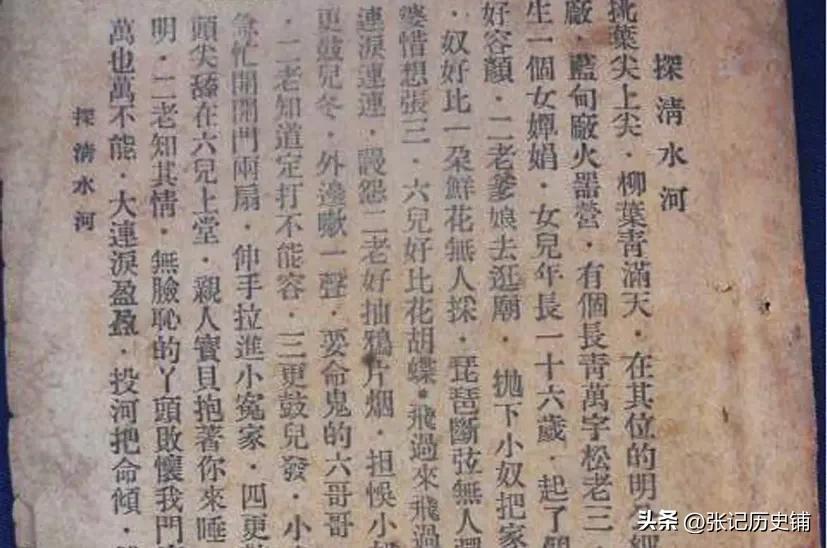 探清水河
桃葉尖上尖．柳葉青滿天．在其位的明
廠．藍甸廠火器營．有個長青萬字松老三
生一個女嬋娟．女兒年長一十六歲．起了個
好容顏．二老爹娘去逛廟．拋下小奴把家
．奴好比一朶鮮花無人採．琵琶斷弦無人
婆惜想張三．六兒好比花胡蝶．飛過來飛過
連淚連連．謾怨二老好抽鴉片烟．担悞小
更鼓兒冬．外邊嗽一聲．要命鬼的六哥哥
．二老知道定打不能容．三更鼓兒發．小
急忙開開門兩扇．伸手拉進小冤家．四更
頭尖舔在六兒上堂．親人寶貝抱著你來睡
明．二老知其情．無臉恥的丫頭敗懷我門
萬也萬不能．大連淚盈盈．投河把命傾．
探清水河
头条 @张记历史铺